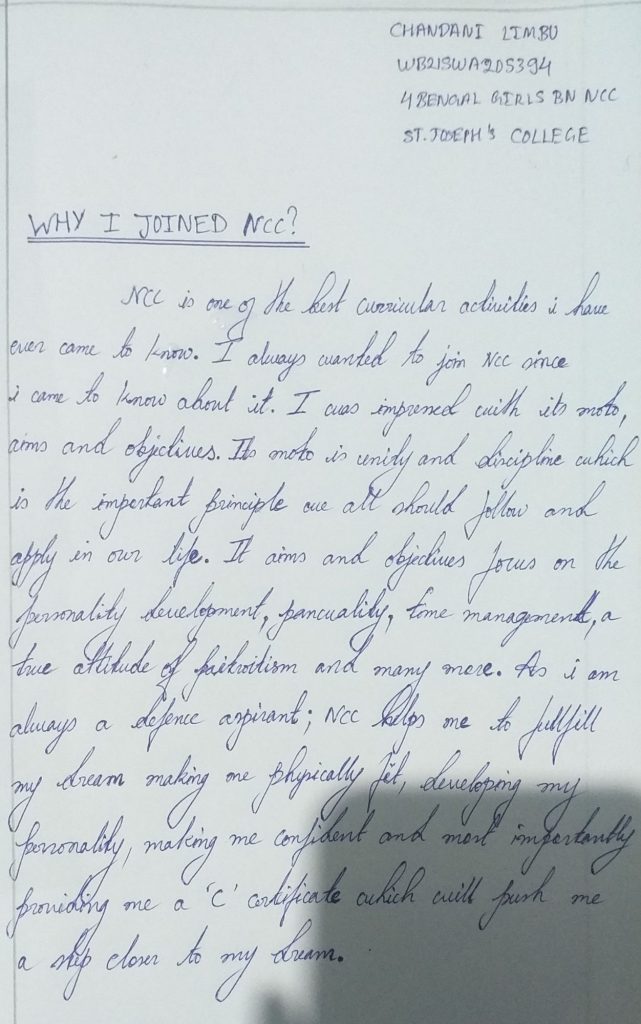 CHANDANI LIMBU
WB21SWA205394
4 BENGAL GIRLS BN NCC
ST. JOSEPH'S COLLEGE
WHY I JOINED NCC?
NCC is one of the best curricular activities i have
ever came to know. I always wanted to join NCC since
i came to know about it. I was impressed with its moto,
aims and objectives. Its moto is unity and discipline which
is the important principle we all should follow and
apply in our life. It aims and objectives focus on the
personality development, pancuality, time management, a
true attitude of paitroitism and many more. As i am
always a defence aspirant; NCC helps me to fullfill
my dream making me physically fit, developing my
personality, making me confident and most importantly
providing me a 'C' certificate which will push me
a step closer to my dream.